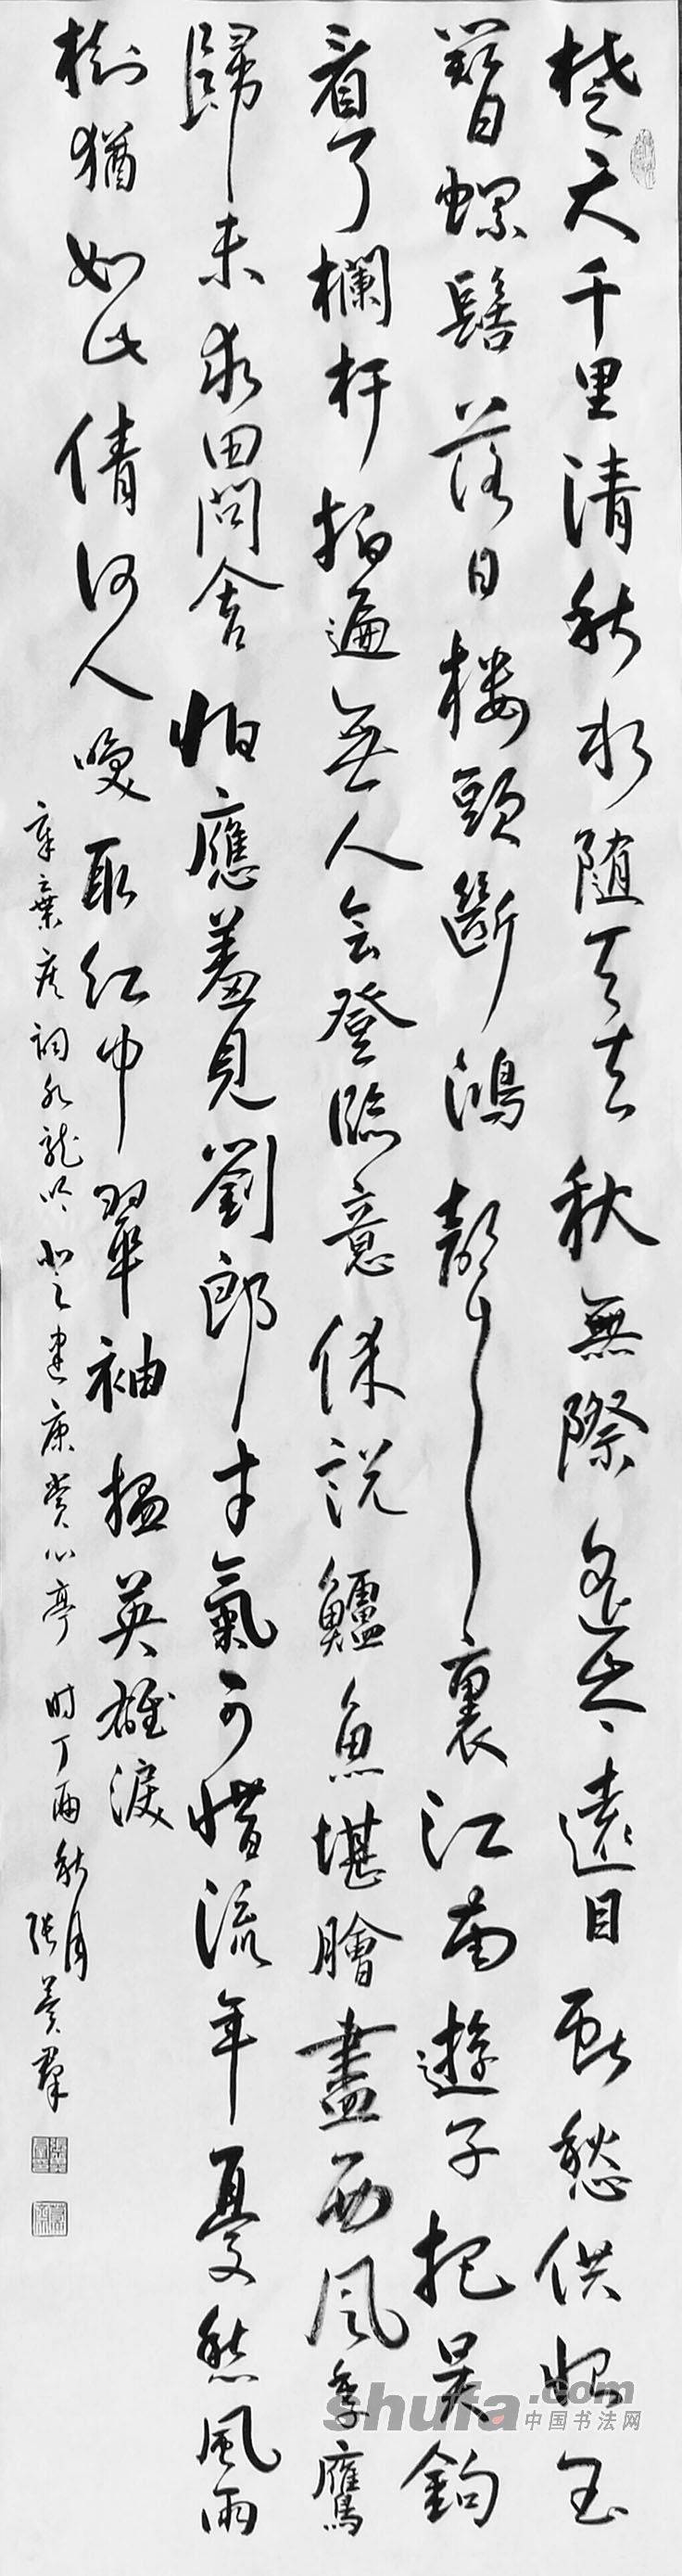 楚天千里清秋水随天去秋無際遥岑遠目献愁供恨玉
簪螺髻落日楼頭斷鴻聲裏江南遊子把吴鉤
看了欄杆拍遍無人会登臨意休説鱸魚堪膾盡西風季鷹
歸未求田問舍怕應羞見劉郎才氣可惜流年憂愁風雨
樹猶如此倩何人喚取紅巾翠袖揾英雄淚
辛棄疾詞水龍吟登建康賞心亭 时丁酉秋月張群
shufa.com
中国书法网